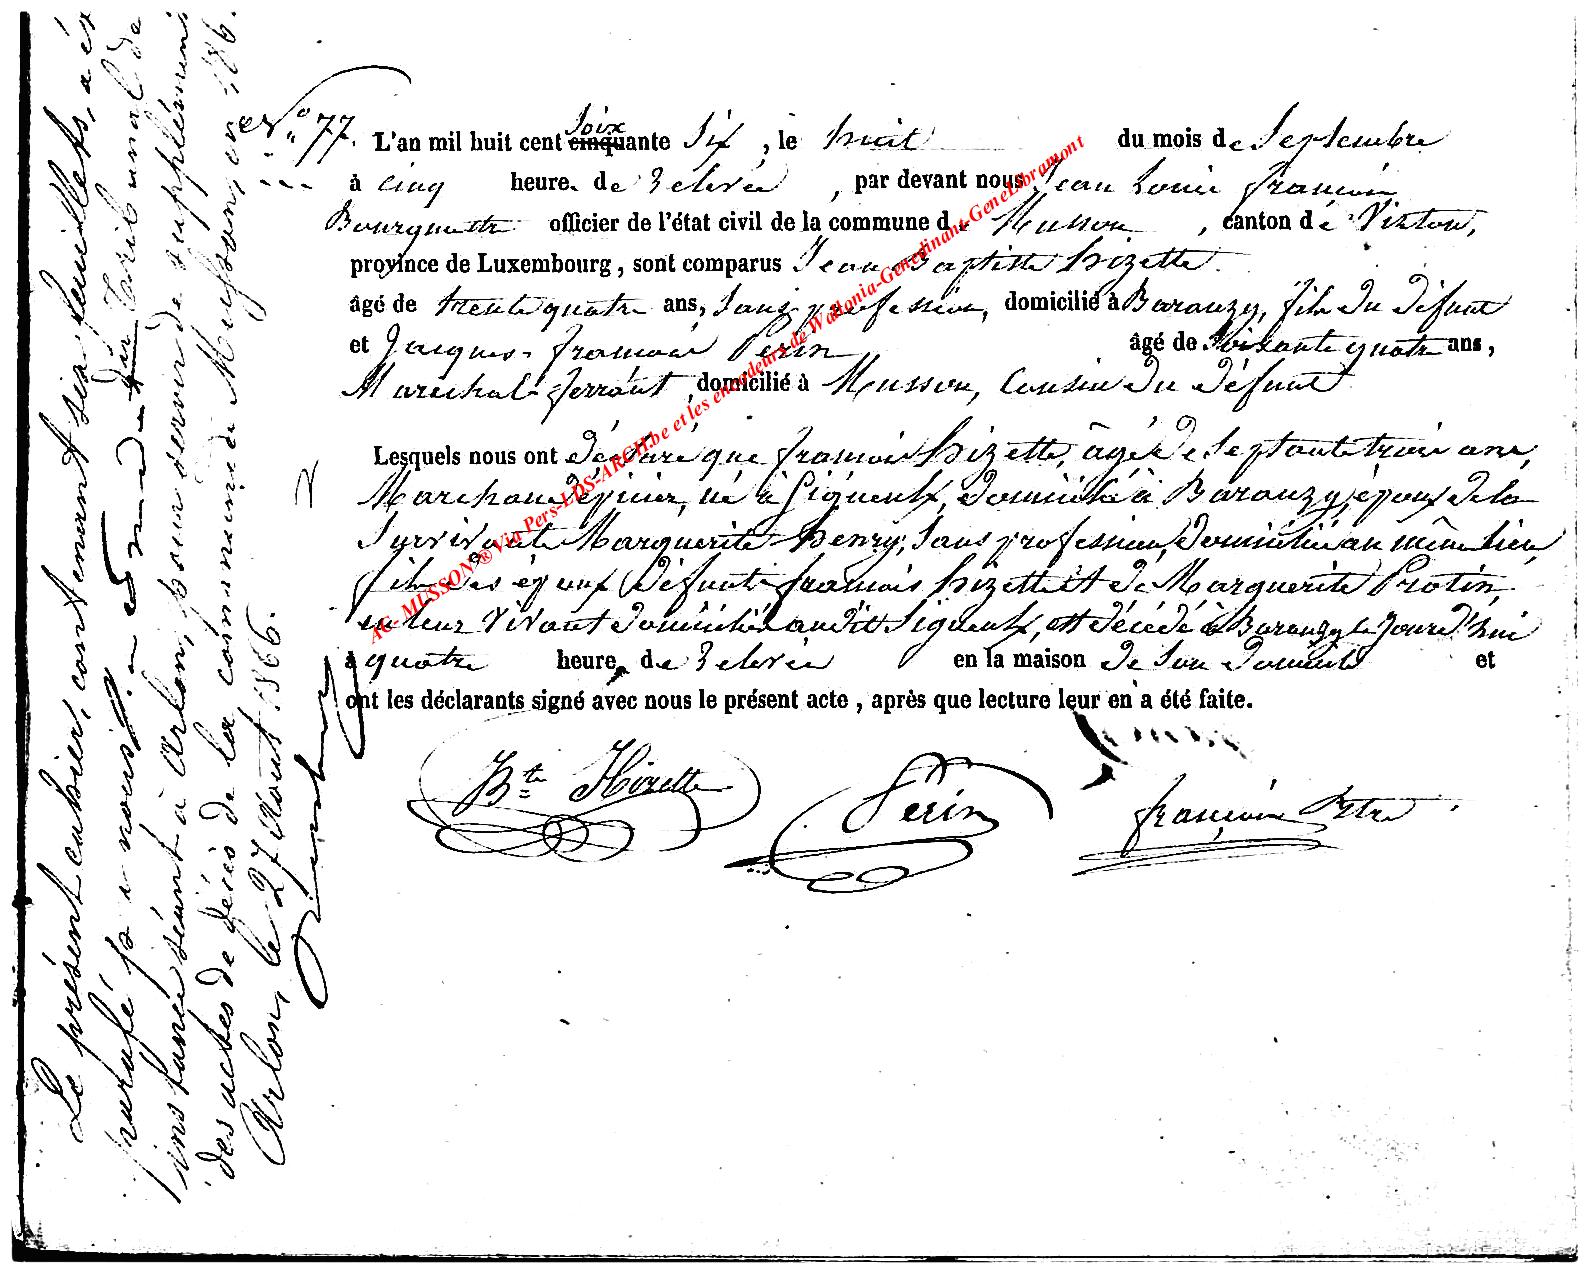 Nº 77.
L'an mil huit cent soixante six, le huit du mois de Septembre
à cinq heure. de relevée, par devant nous Jean Louis françois
Bourguette officier de l'état civil de la commune de Musson, canton de Virton,
province de Luxembourg, sont comparus Jean Baptiste hizette
âgé de trente quatre ans, sans profession, domicilié à Baranzy, fils du défunt
et Jacques-françois Perin âgé de soixante quatre ans,
Maréchal-ferrant, domicilié à Musson, Cousin du défunt
Lesquels nous ont déclaré que françois hizette, âgé de Septante trois ans,
Marchand épicier, né à Signeulx, domicilié à Baranzy, époux de la
Survivante Marguerite henry, sans profession, domiciliée au même lieu,
fils des époux défunts françois hizette et de Marguerite Protin,
en leur vivant domiciliés audit Signeulx, est décédé à Baranzy le jourd'hui
à quatre heure de relevée en la maison de son domicile et
ont les déclarants signé avec nous le présent acte, après que lecture leur en a été faite.
Bte Hizette Périn françois
Le présent cahier, contenant six feuillets, a été
parafé par nous
instance séant à Arlon, pour servir de supplément
des actes de décès de la commune de Musson, en 1866.
Arlon, le 27 Août 1866.
AC-MUSSON®Via Pers-LDS-ARCH.be et les encodeurs de Wallonia-Genedinant-GeneLibramont